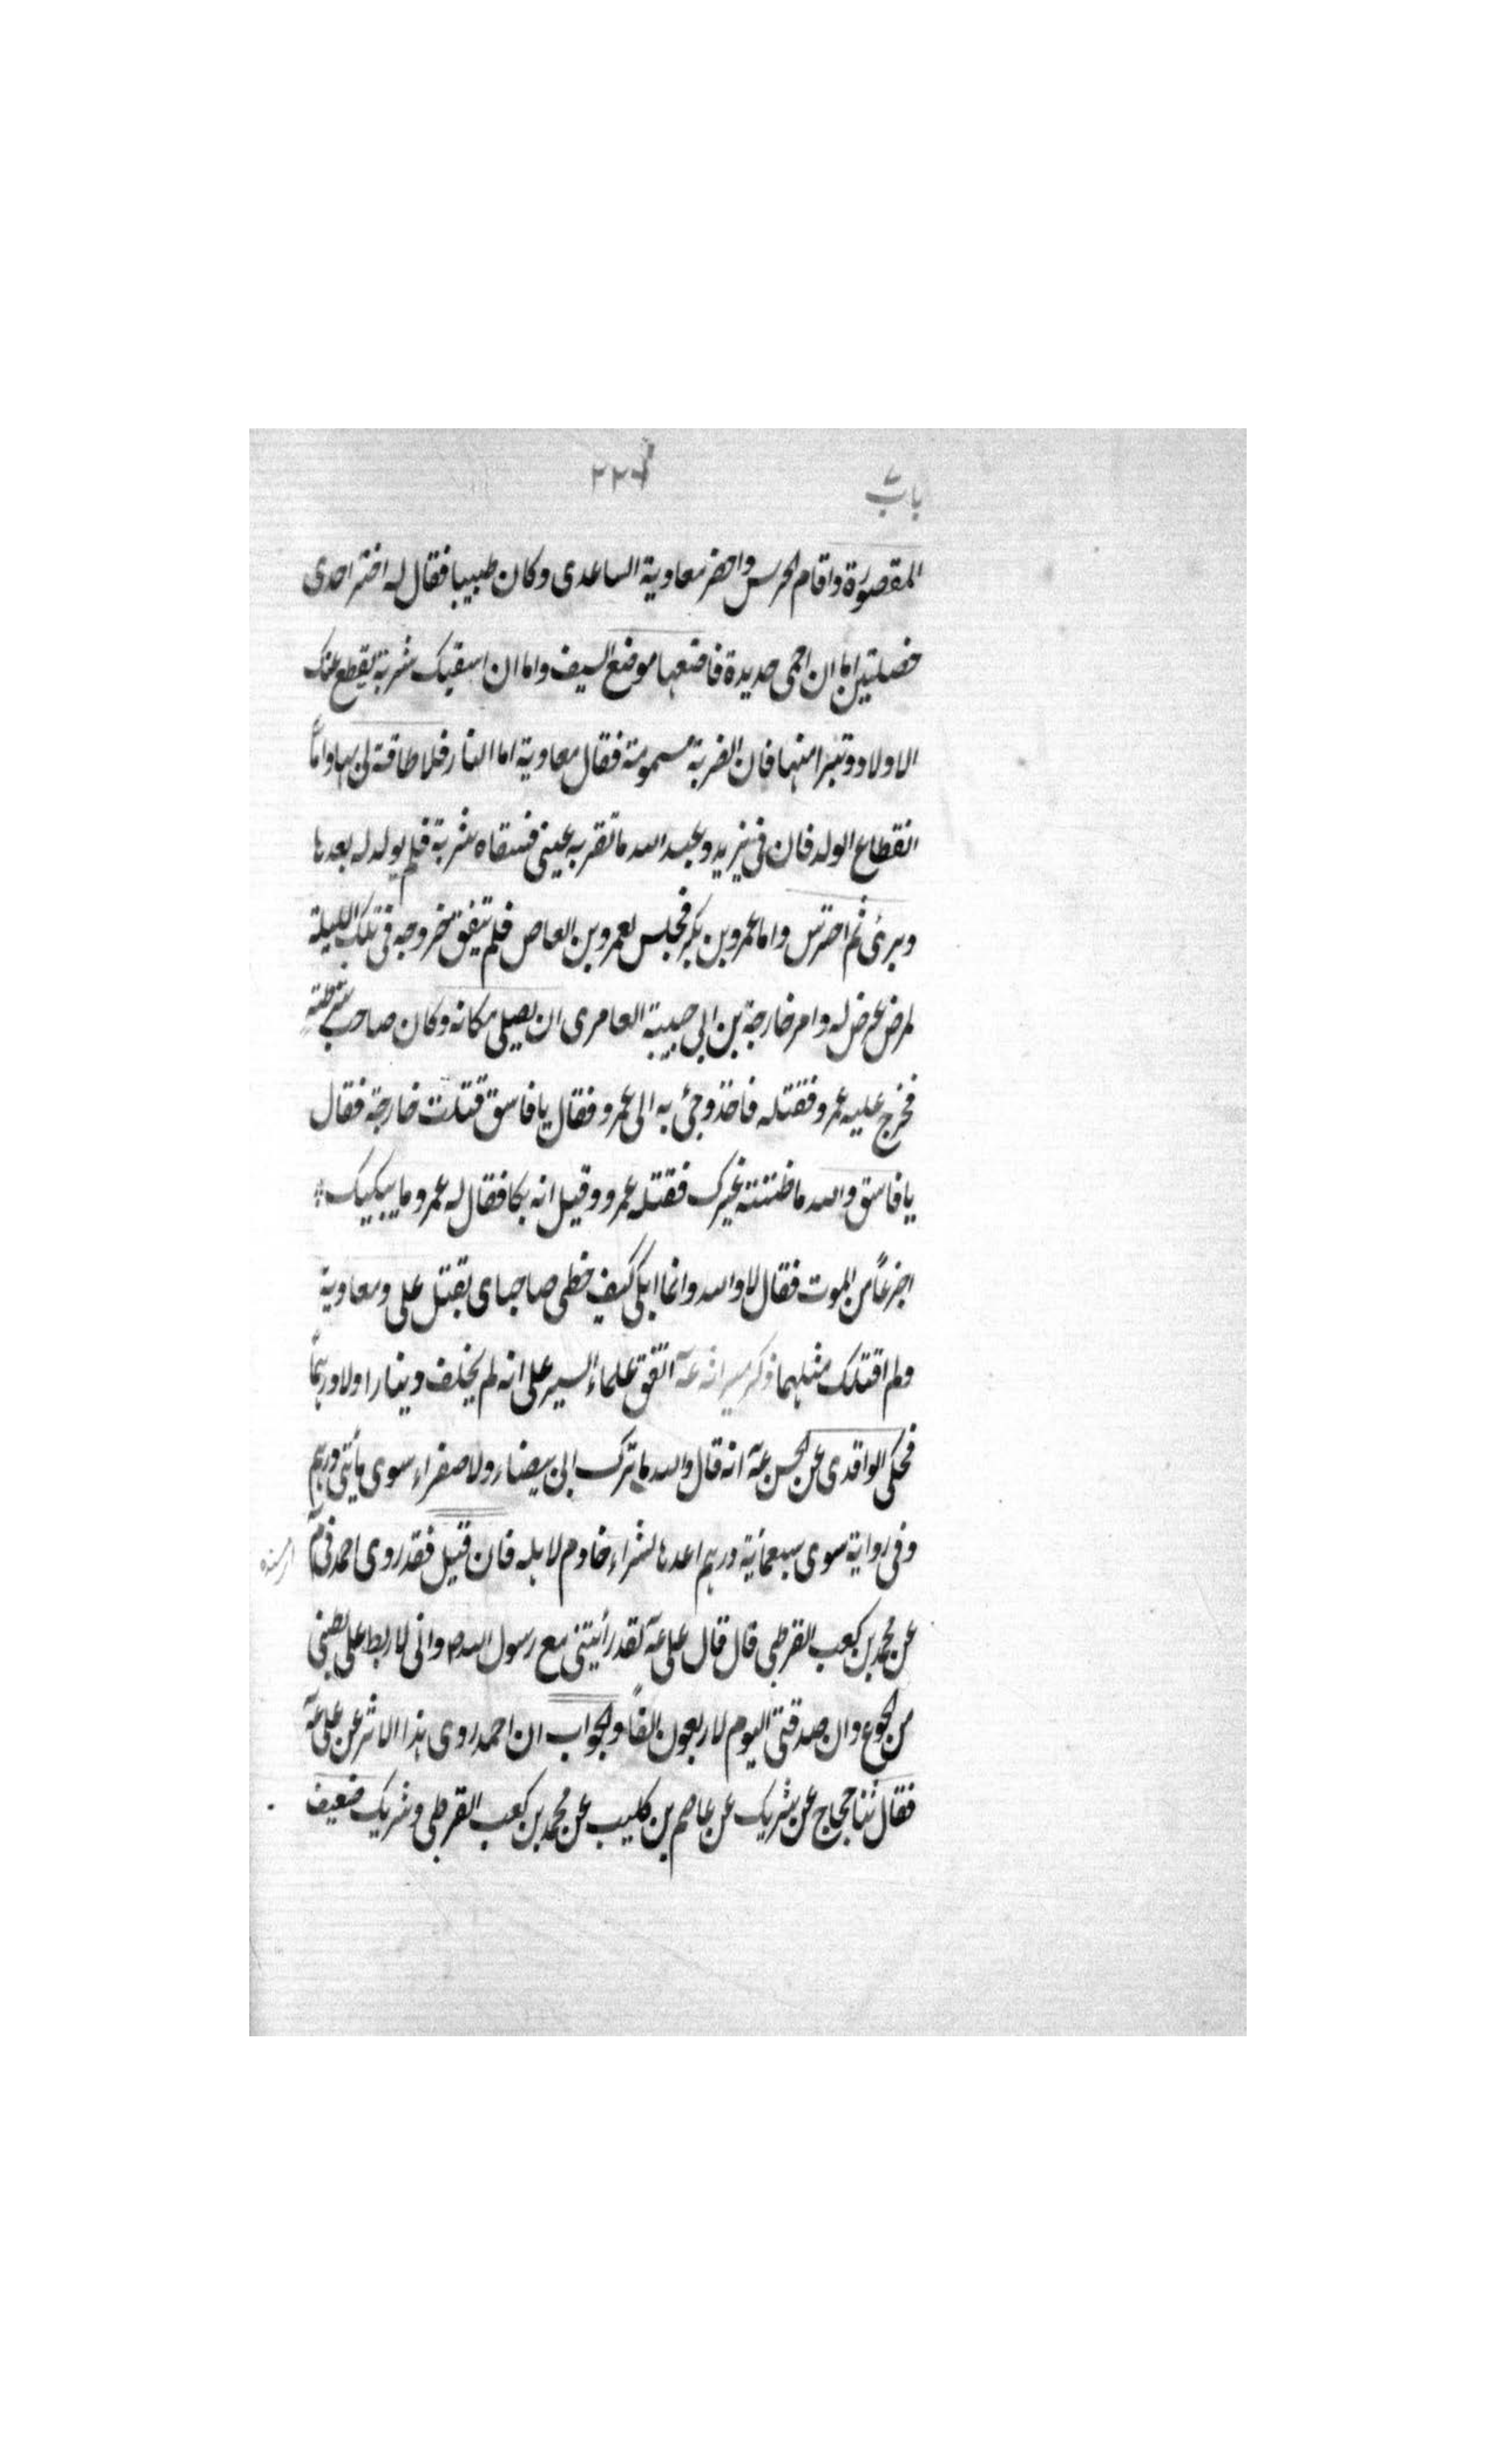 باب
المقصورة واقام الحرس واحضر معاوية الساعدى وكان طبيبا فقال له اختر احدى
خصلتين اما ان احمى حديدة فاضعها موضع السيف واما ان اسقيك شربة يقطع عنك
الاولاد وتبرأ منها فان الضربة مسمومة فقال معاوية اما النار فلا طاقة لى بها واما
انقطاع الولد فان فى يزيد وعبد الله ما تقر به عينى فسقاه شربة فلم يولد له بعدها
وبرئ ثم احترس واما عمرو بن بكر فجلس لعمرو بن العاص فلم يتفق خروجه فى تلك الليلة
لمرض عرض له وامر خارجة بن ابى حبيبة العامرى ان يصلى مكانه وكان صاحب شرطته
فخرج عليه عمرو فقتله فاخذ وجئ به الى عمرو فقال يا فاسق قتلت خارجة فقال
يا فاسق والله ما ظننته غيرك فقتله عمرو وقيل انه بكا فقال له عمرو ما يبكيك
اجزعاً من الموت فقال لا والله وانما ابكى كيف حظى صاحباى بقتل على ومعاوية
ولم اقتلك مثلهما ذكر ميراثه عـ اتفق علماء السير على انه لم يخلف دينارا ولا درهماً
فحكى الواقدى عن الحسن عـ انه قال والله ما ترك ابى بيضاء ولا صفراء سوى مأتى درهم
وفى رواية سوى سبعمائة درهم اعدها لشراء خادم لاهله فان قيل فقد روى احمد فى
عن محمد بن كعب القرظى قال قال على عـ لقد رأيتنى مع رسول الله ص وانى لاربط على بطنى
من الجوع وان صدقتى اليوم لاربعون الفاً والجواب ان احمد روى هذا الاثر عن على عـ
فقال ثنا حجاج عن شريك عن عاصم بن كليب عن محمد بن كعب القرظى وشريك ضعيف